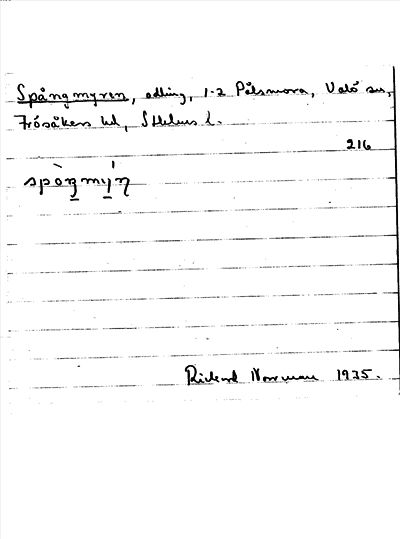 Spångmyren, odling, 1-2 Pålsmora, Valö sn,
Frösåkers hd, Sthlms l.
216
spòŋmýn
Rickard Norrman 1935.